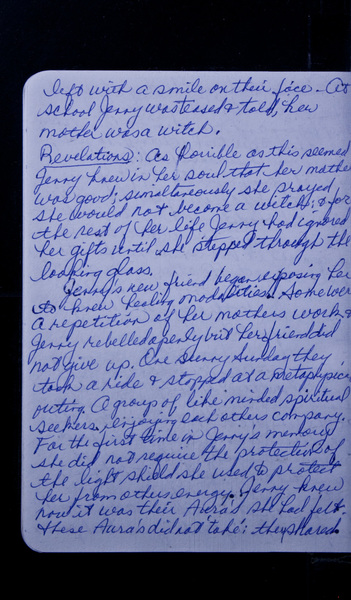 left with a smile on their face - At
school Jerry was teased & told, her
mother was a witch.
Revelations: As horrible as this seemed
Jerry knew in her soul that her mother
was good, simultaneously she prayed
she would not become a witch; & for
the rest of her life Jerry had ignored
her gifts until she stepped through the
looking glass.
Jerry's new friend began exposing her
to healing modalities. Some were
a repetition of her mothers work &
Jerry rebelled openly but her friend did
not give up. One Sunny Sunday they
took a ride & stopped at a metaphysical
outing. A group of like minded spiritual
seekers, enjoying each others company.
For the first time in Jerry's memory
she did not require the protection of
the light shield she used to protect
her from others energy. Jerry knew
now it was their Aura's she had felt.
these Aura's did not take; they shared